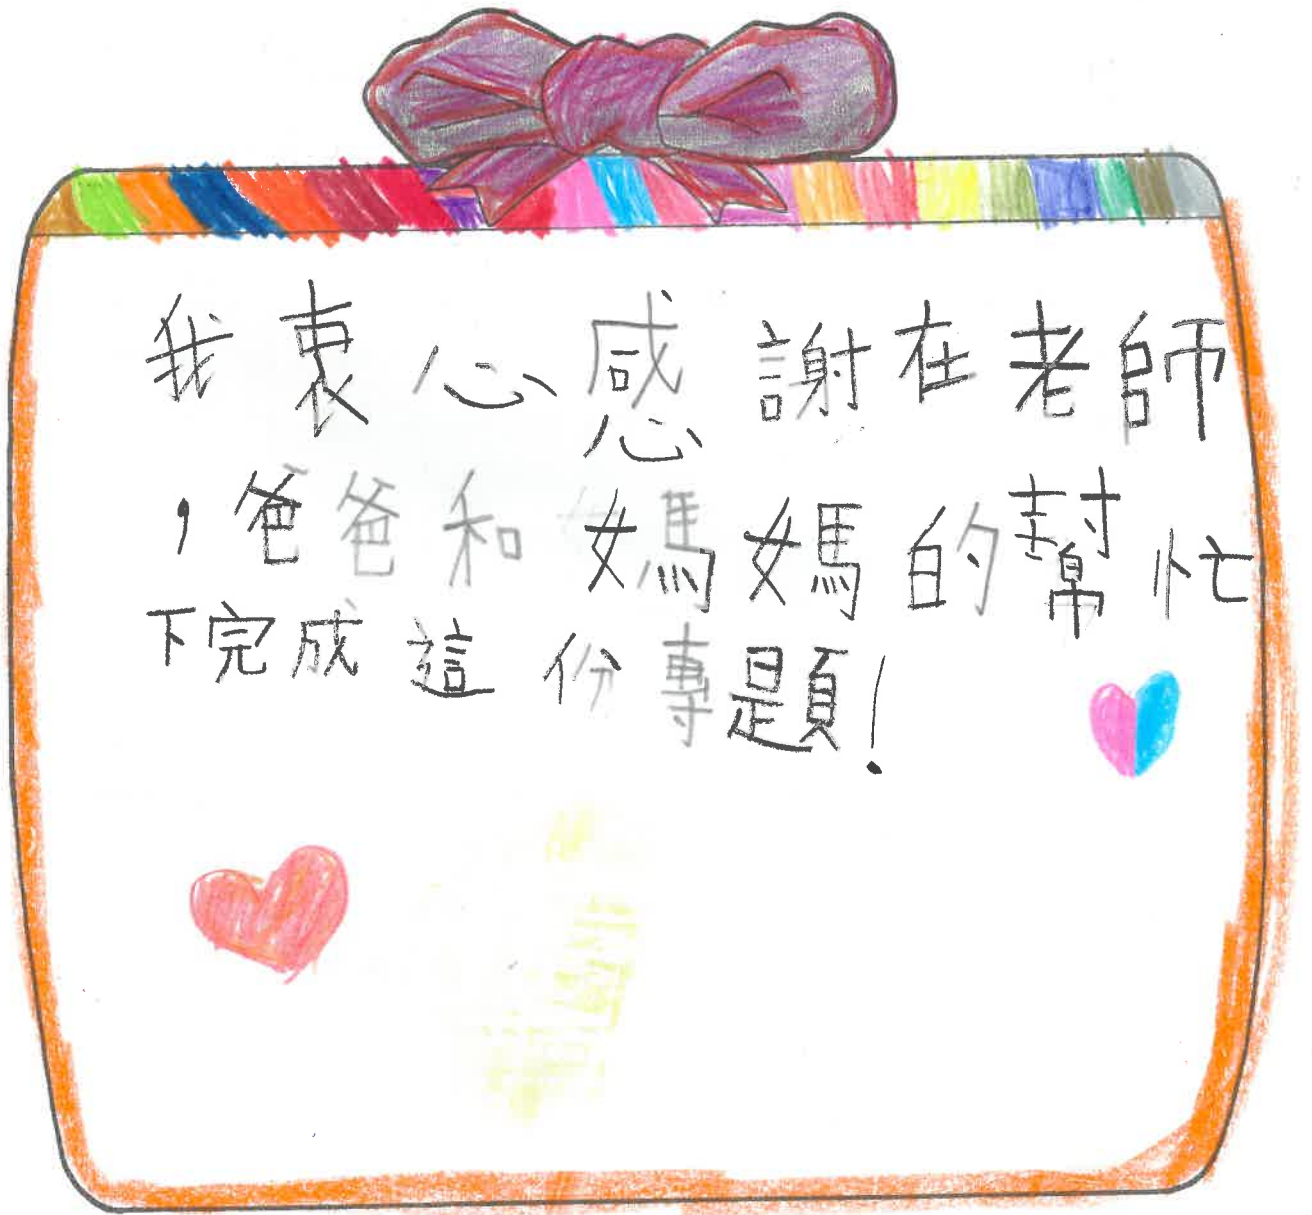 我衷心感謝在老師
，爸爸和媽媽的幫忙
下完成這份專題！